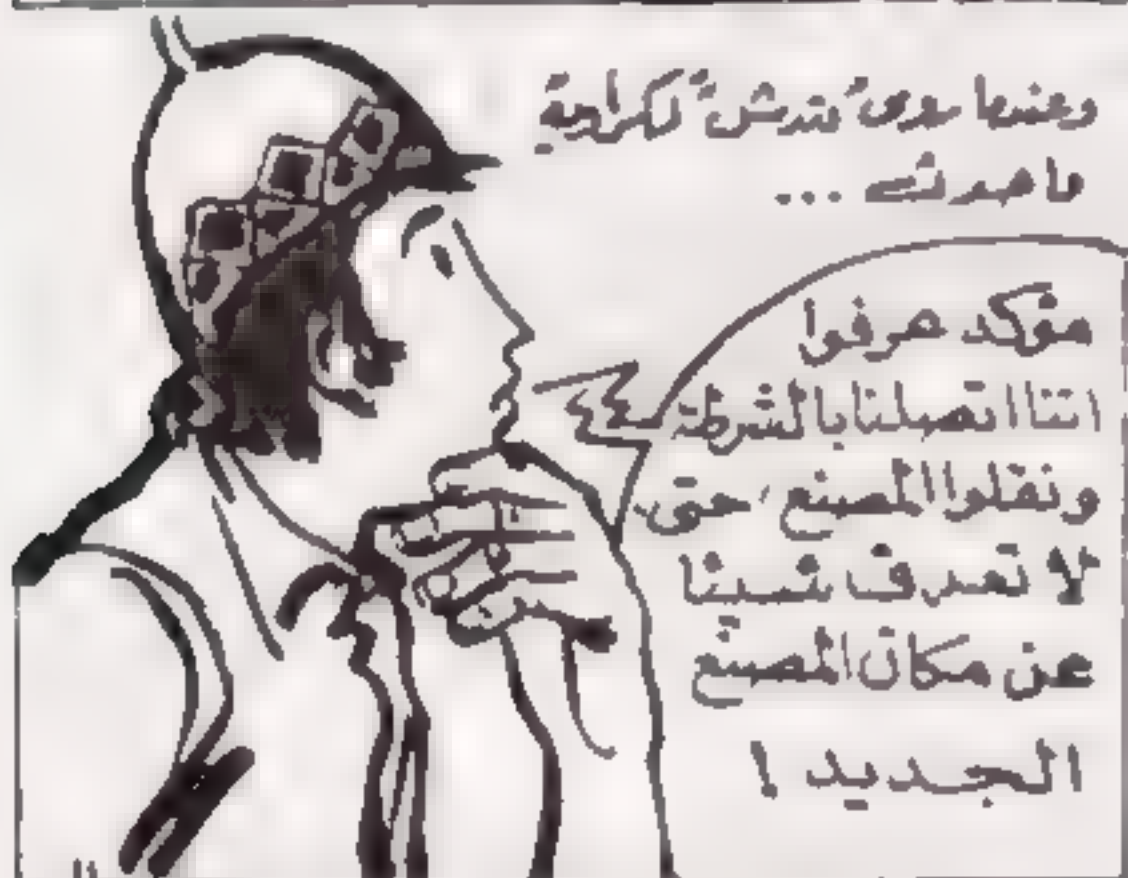 وعندما روى "بندش" لكراوية
ما حدث ...
مؤكد عرفوا
اننا اتصلنا بالشرطة
ونقلوا المصنع، حتى
لا نعرف شيئا
عن مكان المصنع
الجديد !